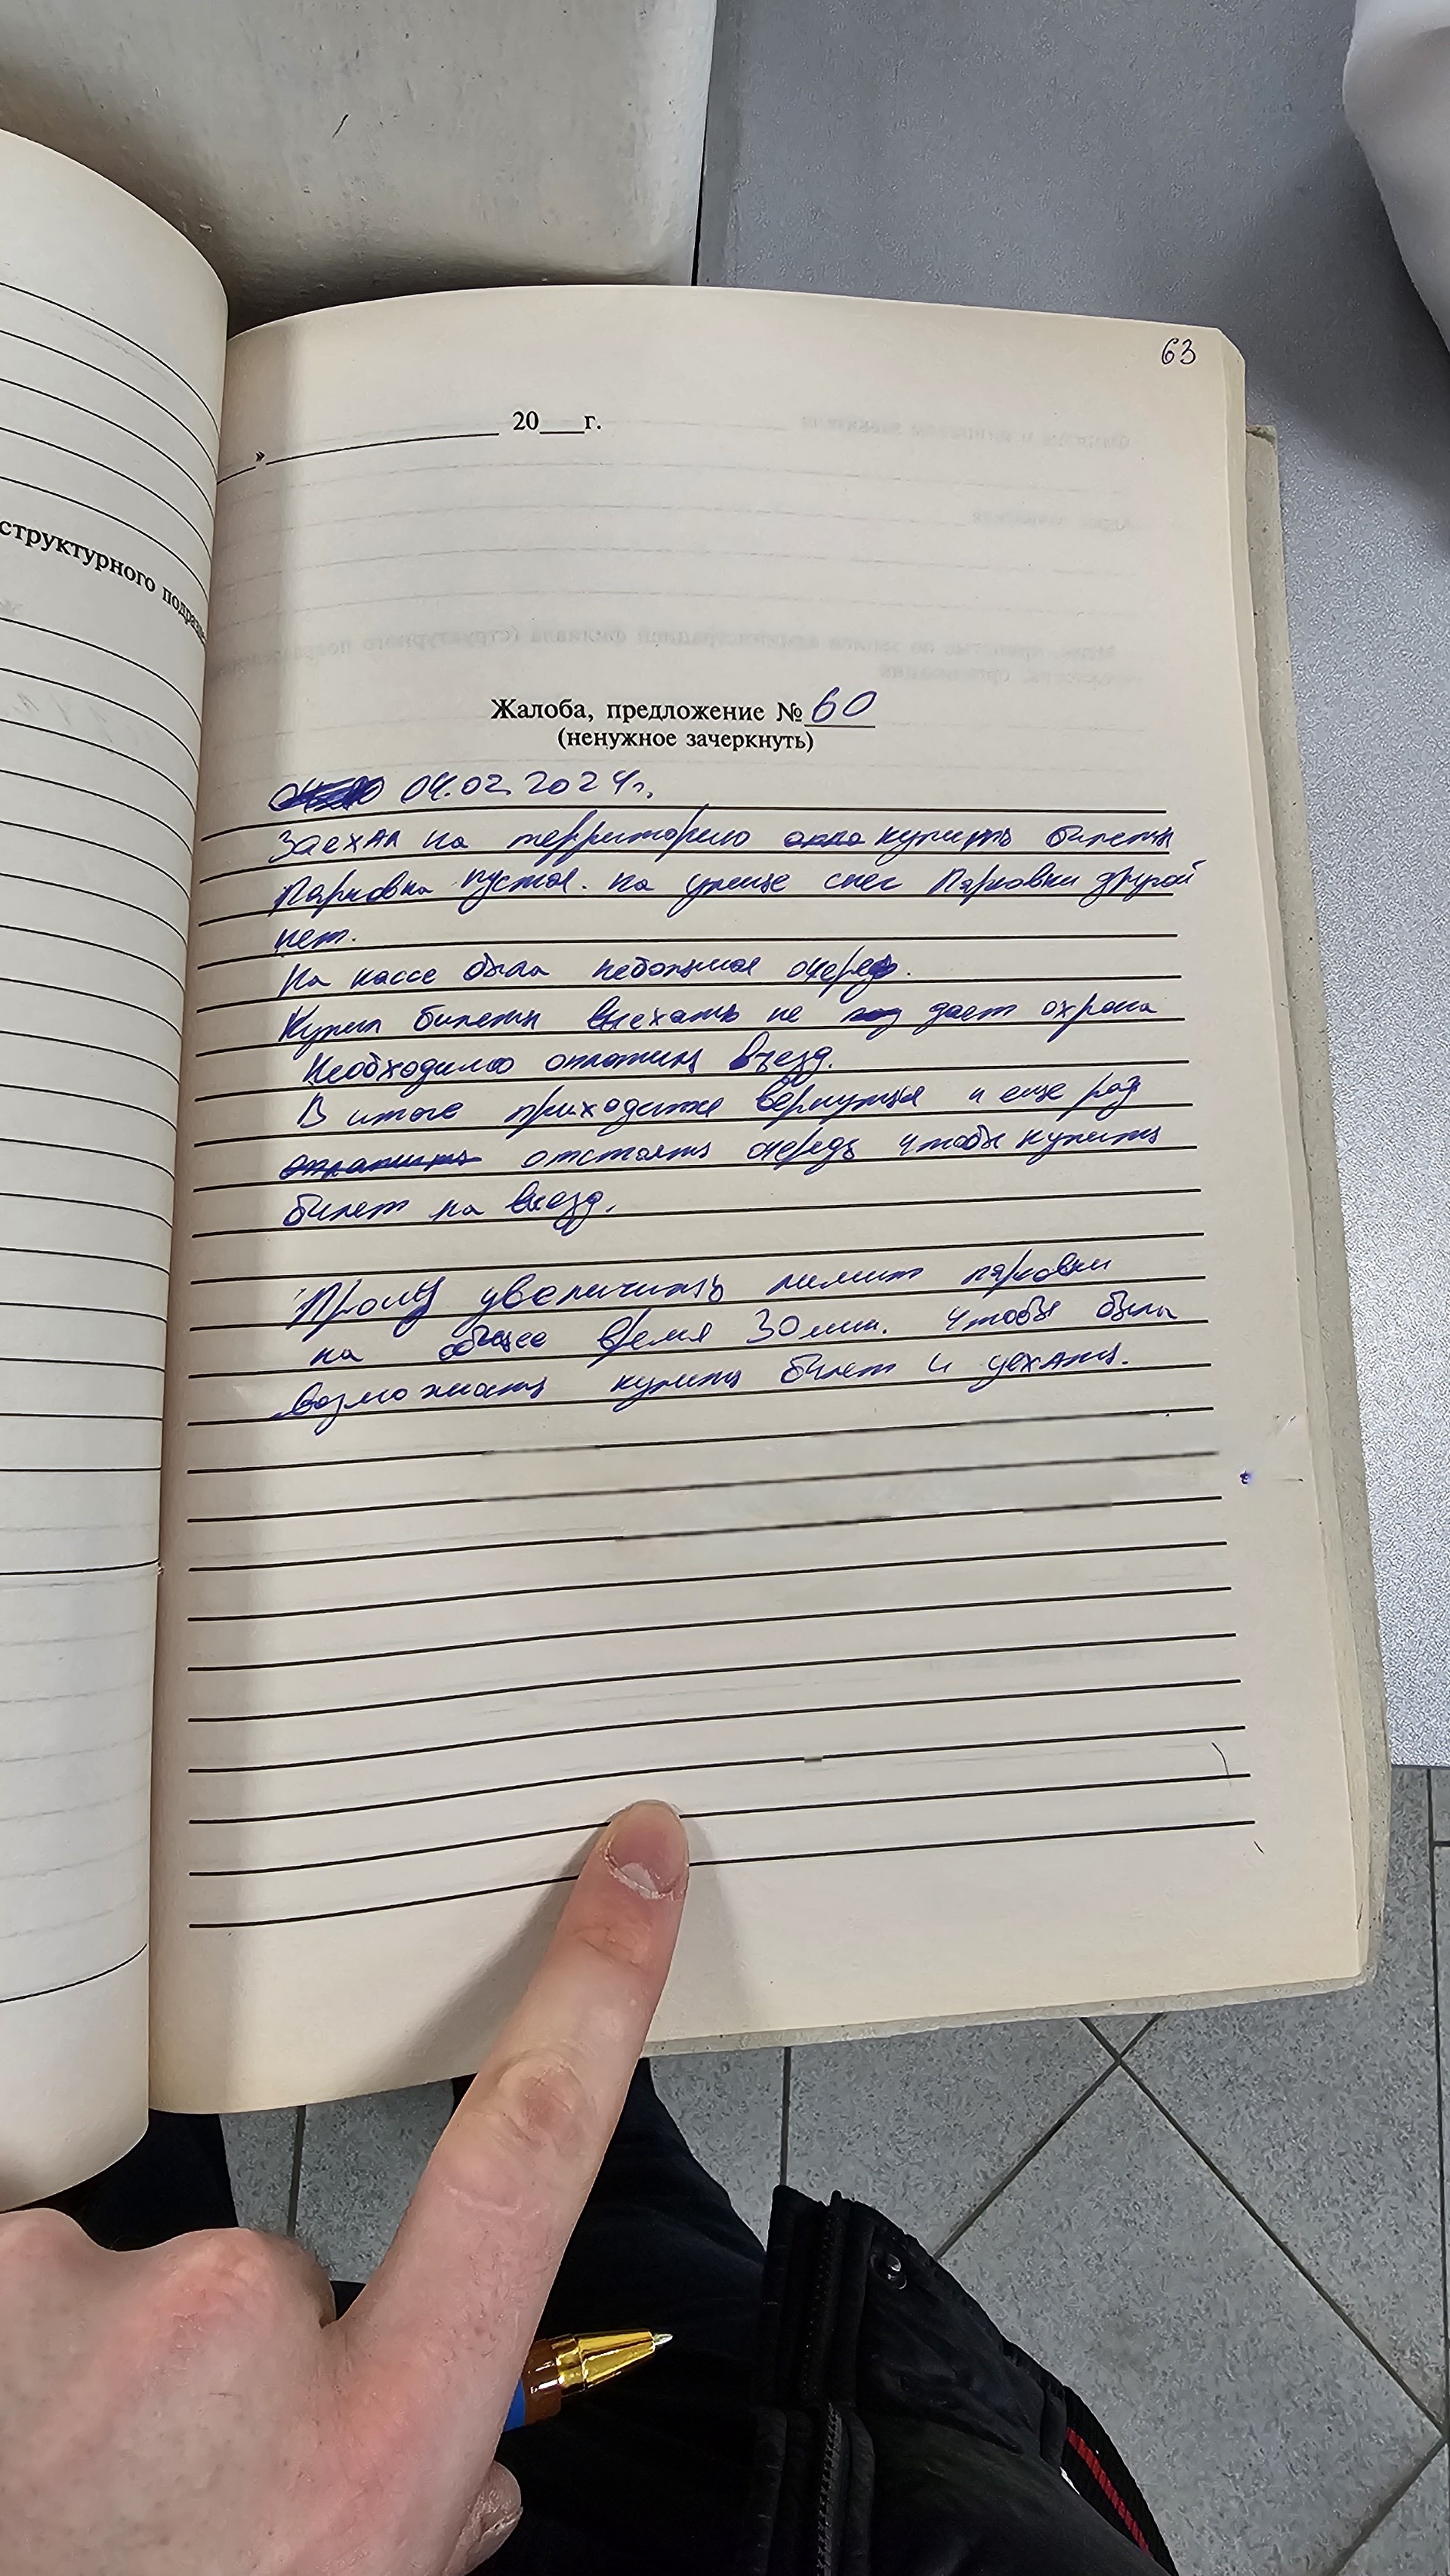 63
» 20 г.
структурного подразде
Жалоба, предложение № 60
(ненужное зачеркнуть)
04.02.2024г.
Заехал на территорию купить билеты
Парковка пустая. на улице снег Парковки другой
нет.
На кассе была небольшая очередь.
Купил билеты выехать не дает охрана
Необходимо оплатить въезд.
В итоге приходится вернуться и еще раз
отстоять очередь чтобы купить
билет на въезд.
Прошу увеличить лимит парковки
на общее время 30 мин. чтобы была
возможность купить билет и уехать.